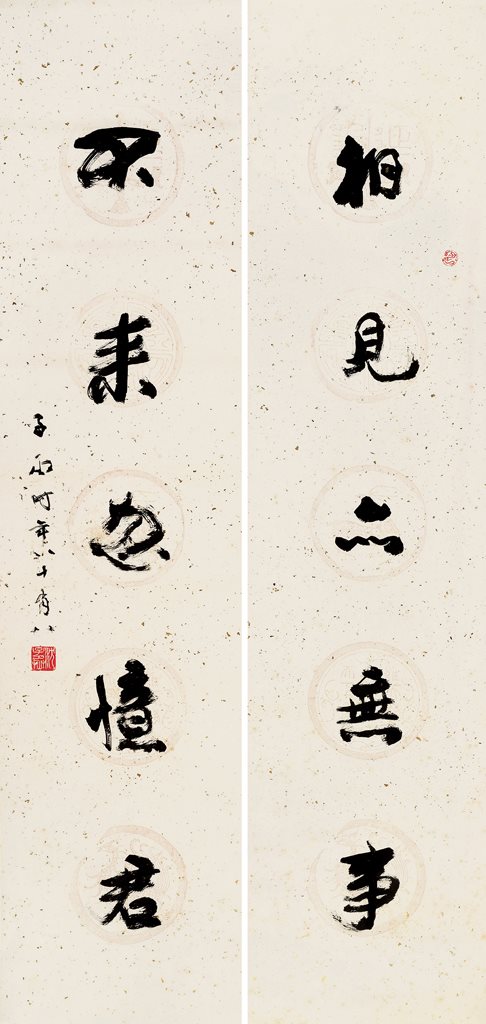 相見亦無事
不来忽憶君
子丞时年八十有八